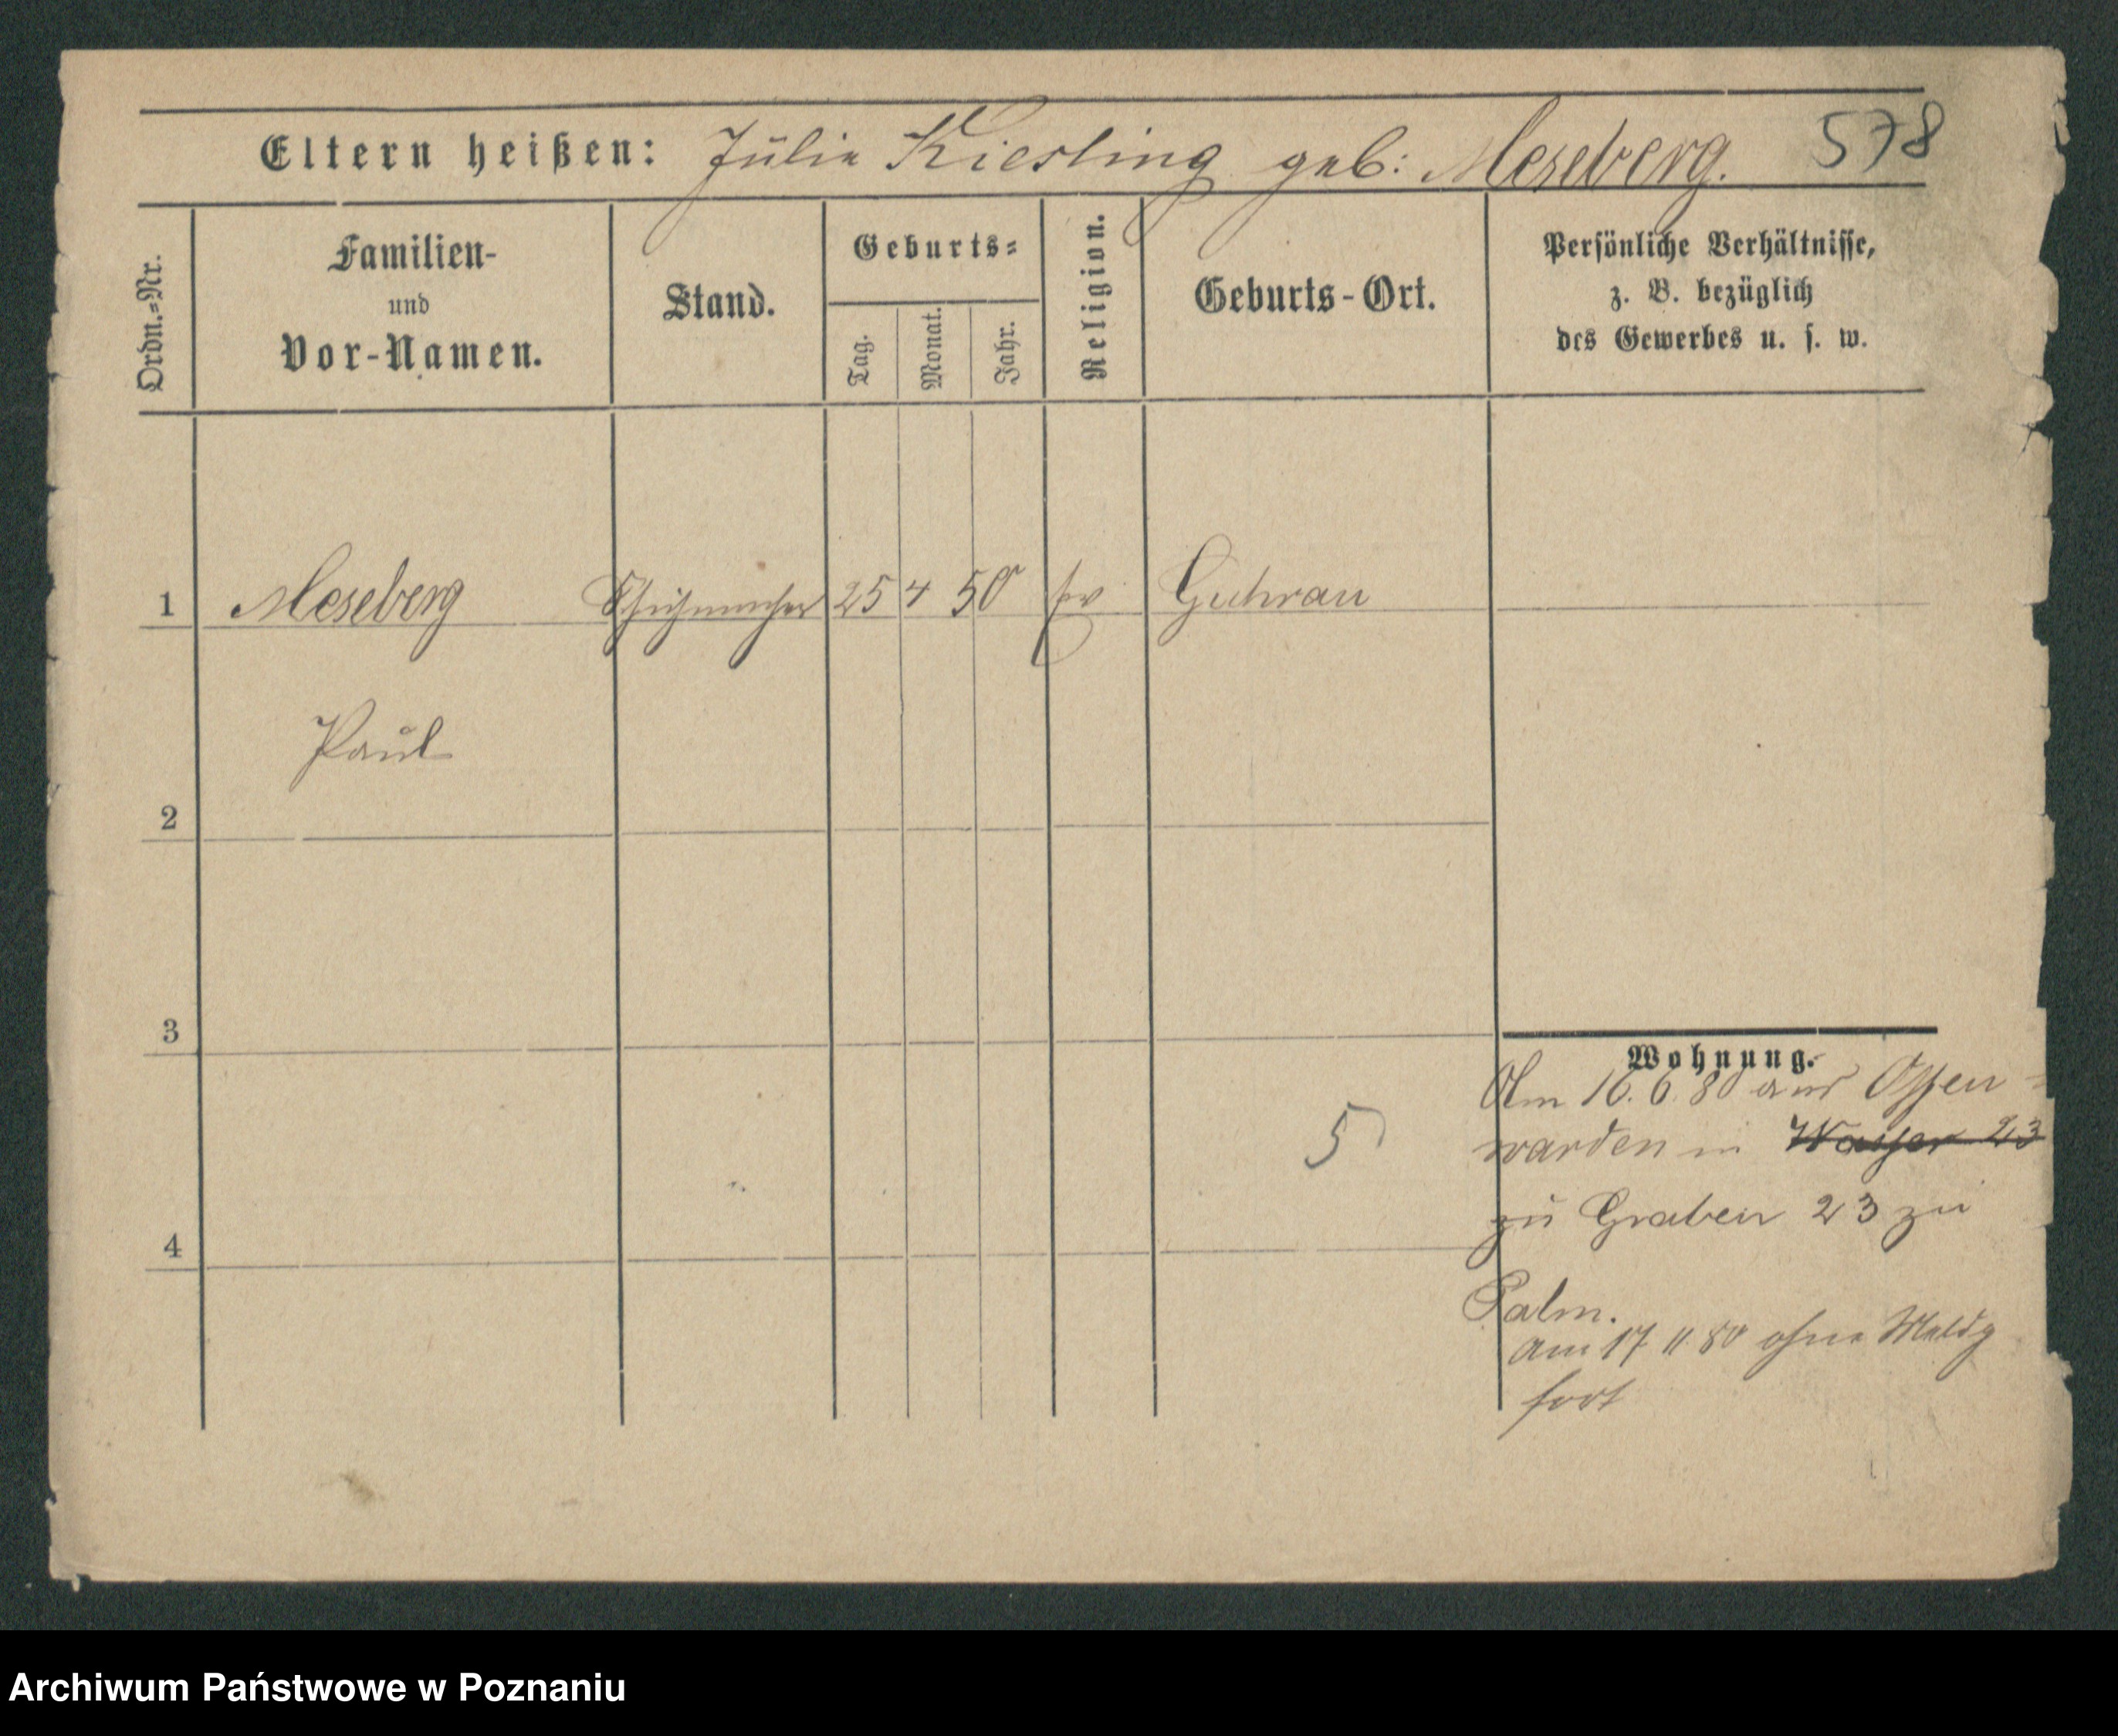 Eltern heißen: Julie Kiesling geb: Meseberg. 578
Ordn.=Nr.
Familien-
und
Vor-Namen.
Stand.
Geburts=
Tag.
Monat.
Jahr.
Religion.
Geburts-Ort.
Persönliche Verhältnisse,
z. B. bezüglich
des Gewerbes u. s. w.
1 Meseberg Schuhmacher 25 4 50 ev Guhrau
Paul
2
3
Wohnung.
Am 16. 6. 80 aus
warden in Wasser 23
5
zu Graben 23 zu
4
Palm.
am 17 11 80 ohne Meldg
fort
Archiwum Państwowe w Poznaniu